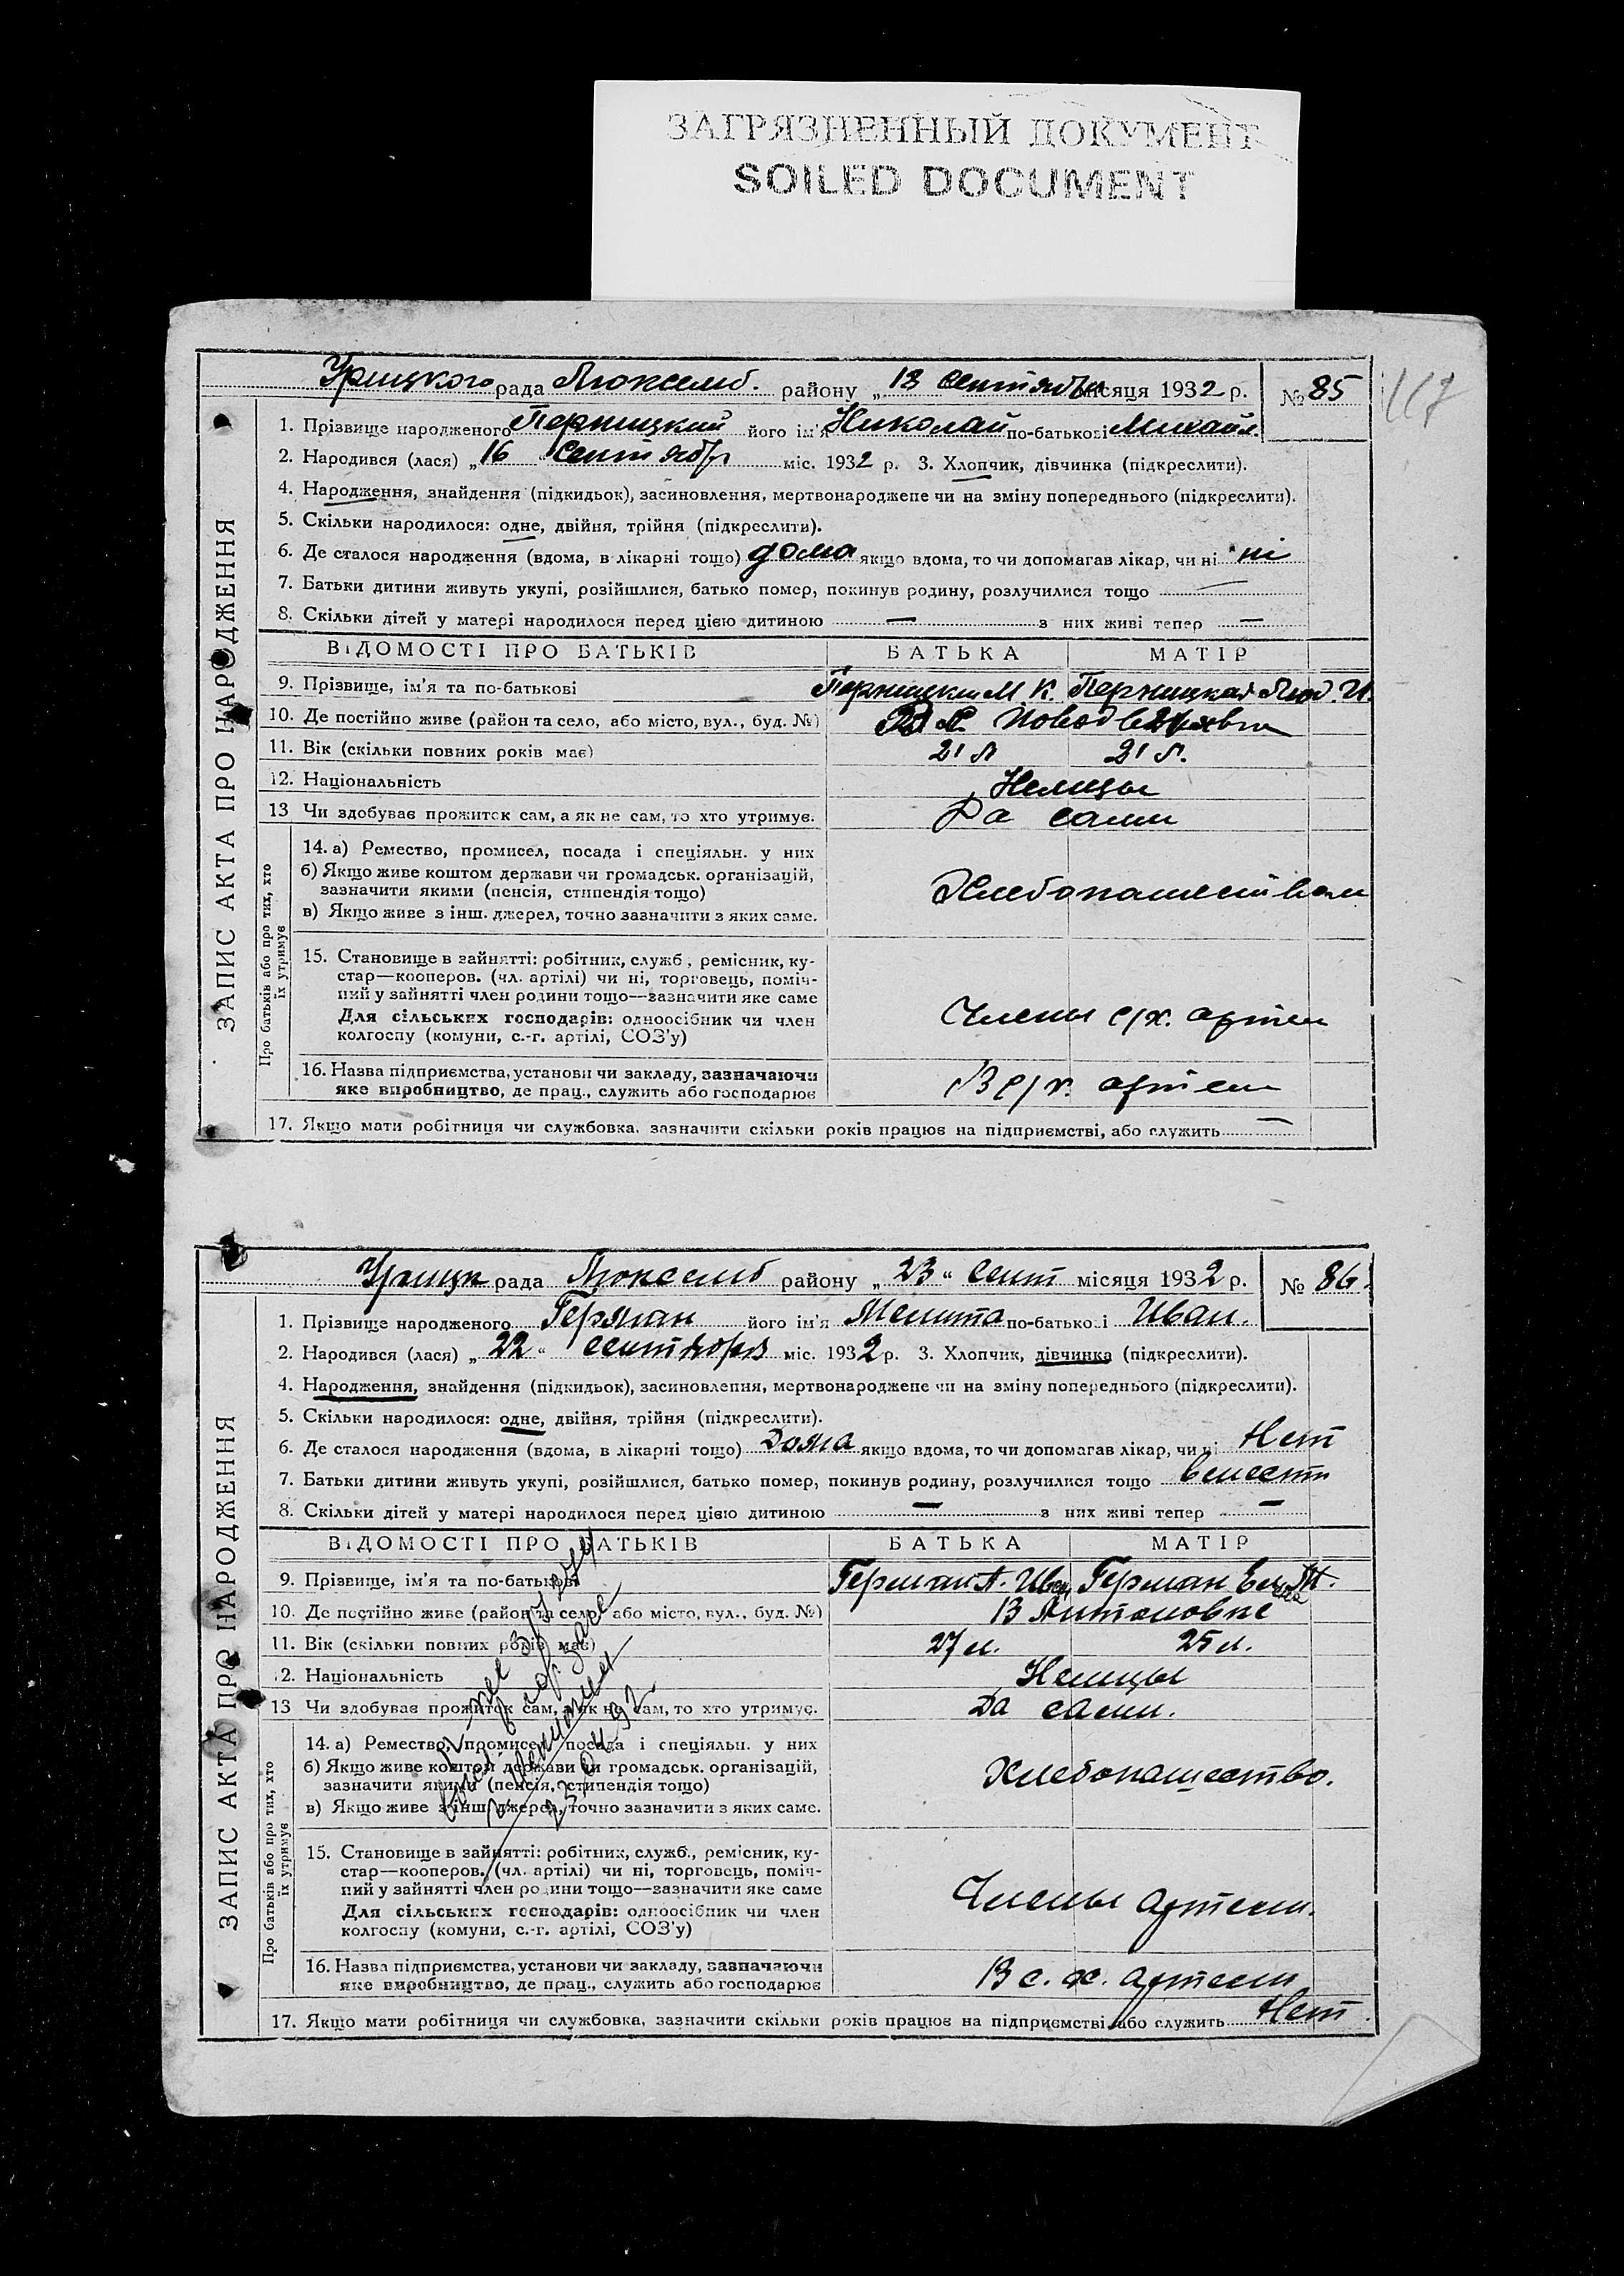 ЗАГРЯЗНЕННЫЙ ДОКУМЕНТ
SOILED DOCUMENT
117
Урицкого рада Люксемб. району „ 18 сентября місяця 1932 р. № 85
ЗАПИС АКТА ПРО НАРОДЖЕННЯ
1. Прізвище народженого Перницкий його ім'я Николай по-батькові Михайл.
2. Народився (лася) „ 16 " сентября міс. 1932 р. 3. Хлопчик, дівчинка (підкреслити).
4. Народження, знайдення (підкидьок), засиновлення, мертвонароджене чи на зміну попереднього (підкреслити).
5. Скільки народилося: одне, двійня, трійня (підкреслити).
6. Де сталося народження (вдома, в лікарні тощо) дома якщо вдома, то чи допомагав лікар, чи ні ні
7. Батьки дитини живуть укупі, розійшлися, батько помер, покинув родину, розлучилися тощо —
8. Скільки дітей у матері народилося перед цією дитиною — з них живі тепер —
ВІДОМОСТІ ПРО БАТЬКІВ БАТЬКА МАТІР
9. Прізвище, ім'я та по-батькові Перницкий М. К. Перницкая Люд. И.
10. Де постійно живе (район та село, або місто, вул., буд. №)
11. Вік (скільки повних років має) 21 л 21 л.
12. Національність Немцы
13 Чи здобуває прожиток сам, а як не сам, то хто утримує. Да сами
Про батьків або про тих, хто їх утримує
14. а) Ремество, промисел, посада і спеціяльн. у них
б) Якщо живе коштом держави чи громадськ. організацій,
зазначити якими (пенсія, стипендія тощо) Хлебопашеством
в) Якщо живе з інш. джерел, точно зазначити з яких саме.
15. Становище в зайнятті: робітник, служб., ремісник, ку-
стар—кооперов. (чл. артілі) чи ні, торговець, поміч-
ний у зайнятті член родини тощо—зазначити яке саме
Для сільських господарів: одноосібник чи член Члены с/х. артели
колгоспу (комуни, с.-г. артілі, СОЗ'у)
16. Назва підприємства, установи чи закладу, зазначаючи
яке виробництво, де прац., служить або господарює В с/х. артели
17. Якщо мати робітниця чи службовка, зазначити скільки років працює на підприємстві, або служить —
Урицк рада Люксемб району „ 23 " сент місяця 1932 р. № 86.
ЗАПИС АКТА ПРО НАРОДЖЕННЯ
1. Прізвище народженого Герман його ім'я Мелита по-батькові Иван.
2. Народився (лася) „ 22 " сентября міс. 1932 р. 3. Хлопчик, дівчинка (підкреслити).
4. Народження, знайдення (підкидьок), засиновлення, мертвонароджене чи на зміну попереднього (підкреслити).
5. Скільки народилося: одне, двійня, трійня (підкреслити).
6. Де сталося народження (вдома, в лікарні тощо) Дома якщо вдома, то чи допомагав лікар, чи ні Нет
7. Батьки дитини живуть укупі, розійшлися, батько помер, покинув родину, розлучилися тощо вместе
8. Скільки дітей у матері народилося перед цією дитиною — з них живі тепер —
ВІДОМОСТІ ПРО БАТЬКІВ БАТЬКА МАТІР
9. Прізвище, ім'я та по-батькові Герман Герман
10. Де постійно живе (район та село, або місто, вул., буд. №) В Антоновке
11. Вік (скільки повних років має) 27 л. 25 л.
12. Національність Немцы
13 Чи здобуває прожиток сам, а як не сам, то хто утримує. Да сами.
Про батьків або про тих, хто їх утримує
14. а) Ремество, промисел, посада і спеціяльн. у них
б) Якщо живе коштом держави чи громадськ. організацій, Хлебопашество.
зазначити якими (пенсія, стипендія тощо)
в) Якщо живе з інш. джерел, точно зазначити з яких саме.
15. Становище в зайнятті: робітник, служб., ремісник, ку-
стар—кооперов. (чл. артілі) чи ні, торговець, поміч-
ний у зайнятті член родини тощо—зазначити яке саме Члены артели.
Для сільських господарів: одноосібник чи член
колгоспу (комуни, с.-г. артілі, СОЗ'у)
16. Назва підприємства, установи чи закладу, зазначаючи В с. х. артели
яке виробництво, де прац., служить або господарює
17. Якщо мати робітниця чи службовка, зазначити скільки років працює на підприємстві або служить Нет.